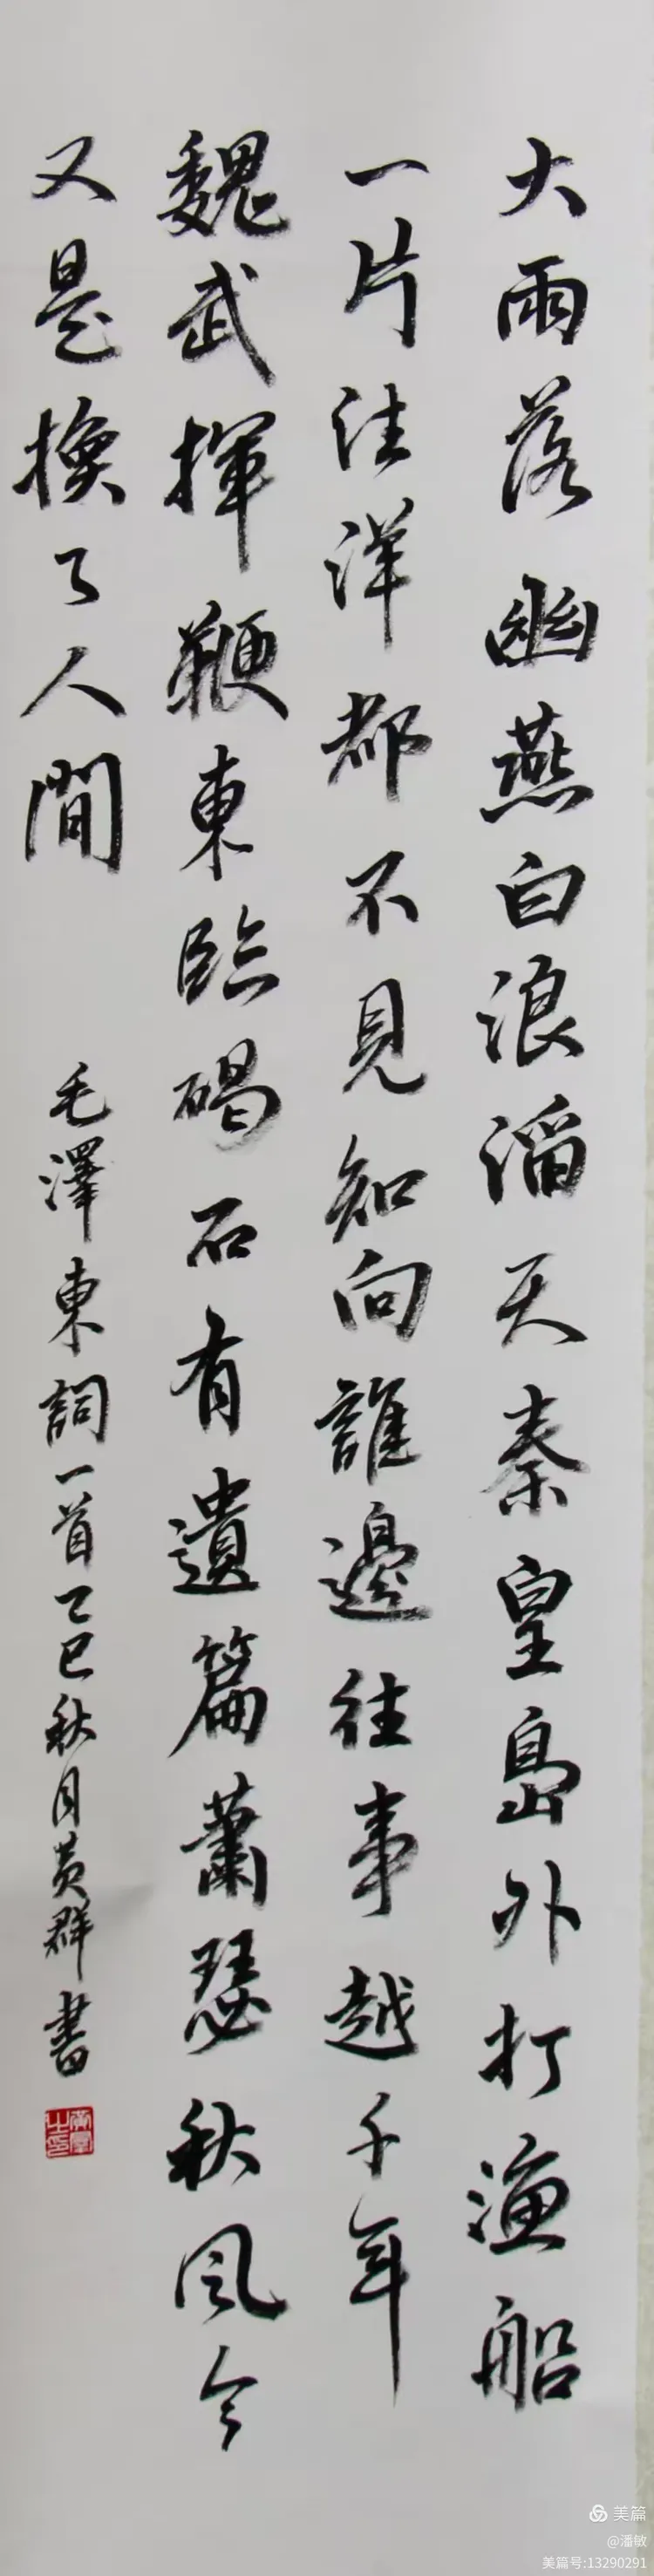 大雨落幽燕白浪滔天秦皇島外打漁船
一片汪洋都不見知向誰邊往事越千年
魏武揮鞭東臨碣石有遺篇蕭瑟秋風今
又是換了人間
毛澤東詞一首乙巳秋月黄群書
黄群之印
美篇
@潘敏
美篇号:13290291